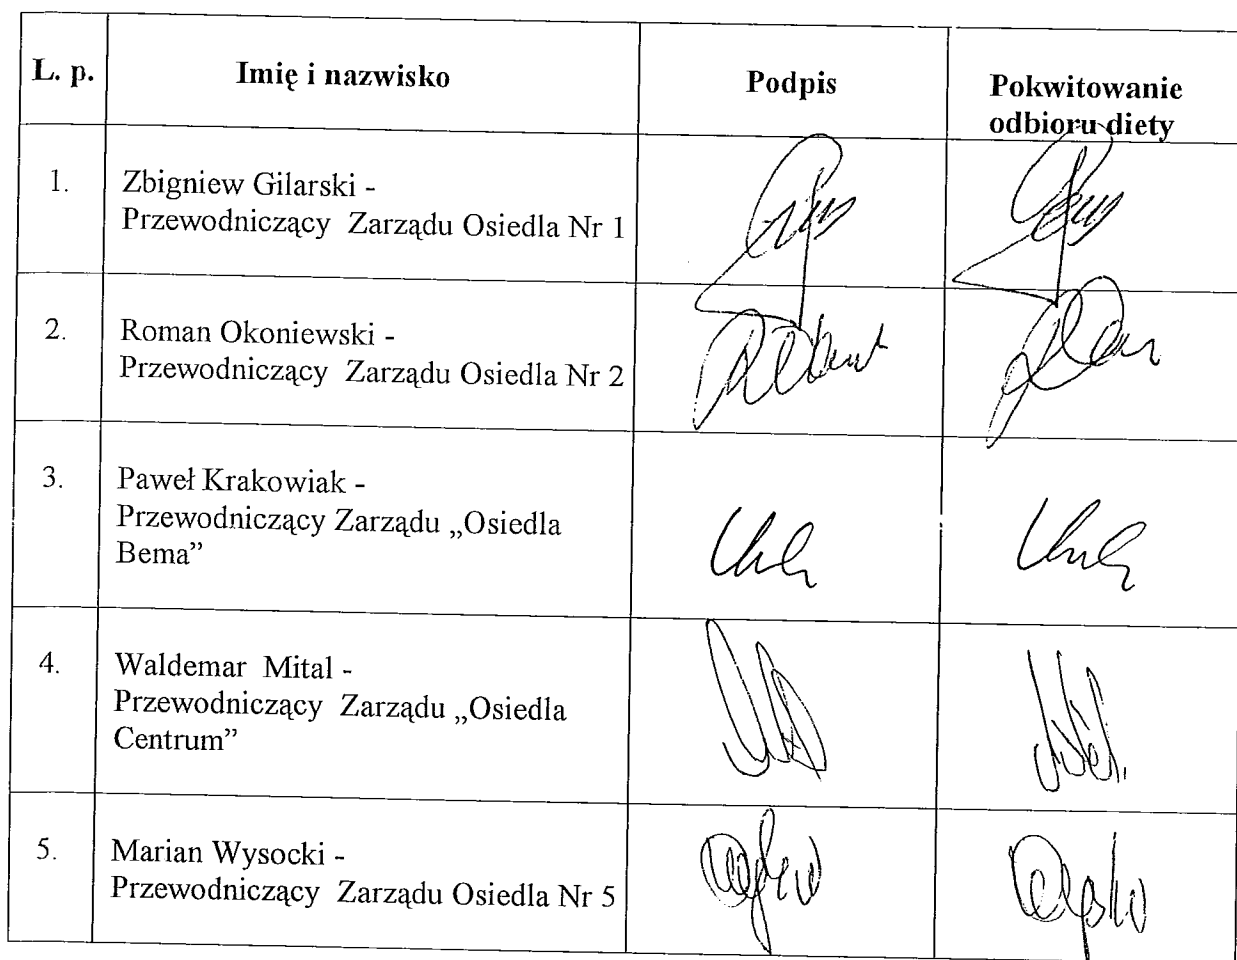 L. p. Imię i nazwisko Podpis Pokwitowanie
odbioru diety
1. Zbigniew Gilarski -
Przewodniczący Zarządu Osiedla Nr 1
2. Roman Okoniewski -
Przewodniczący Zarządu Osiedla Nr 2
3. Paweł Krakowiak -
Przewodniczący Zarządu „Osiedla
Bema”
4. Waldemar Mital -
Przewodniczący Zarządu „Osiedla
Centrum”
5. Marian Wysocki -
Przewodniczący Zarządu Osiedla Nr 5